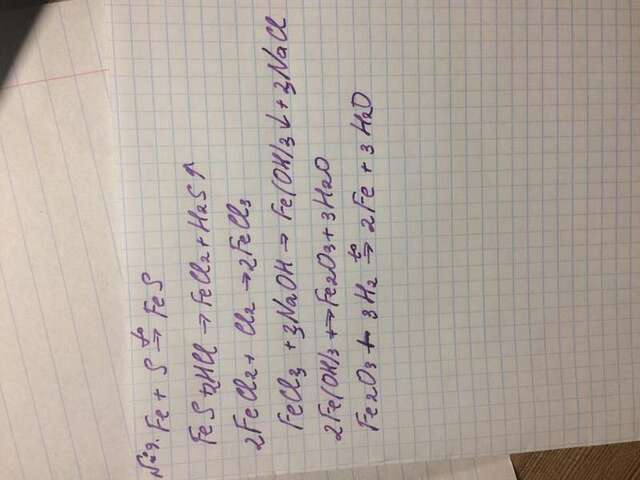 Fe + S →t° FeS
FeS + 2HCl → FeCl2 + H2S↑
2FeCl2 + Cl2 → 2FeCl3
FeCl3 + 3NaOH → Fe(OH)3↓ + 3NaCl
2Fe(OH)3 → Fe2O3 + 3H2O
Fe2O3 + 3H2 →t° 2Fe + 3H2O